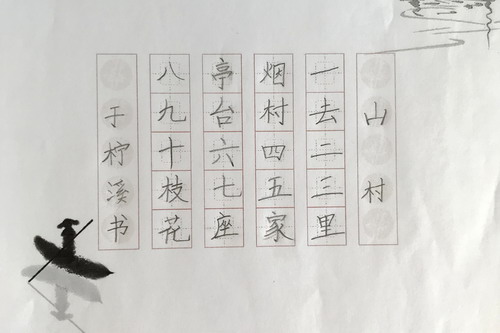 山村
一去二三里
烟村四五家
亭台六七座
八九十枝花
于柠溪书